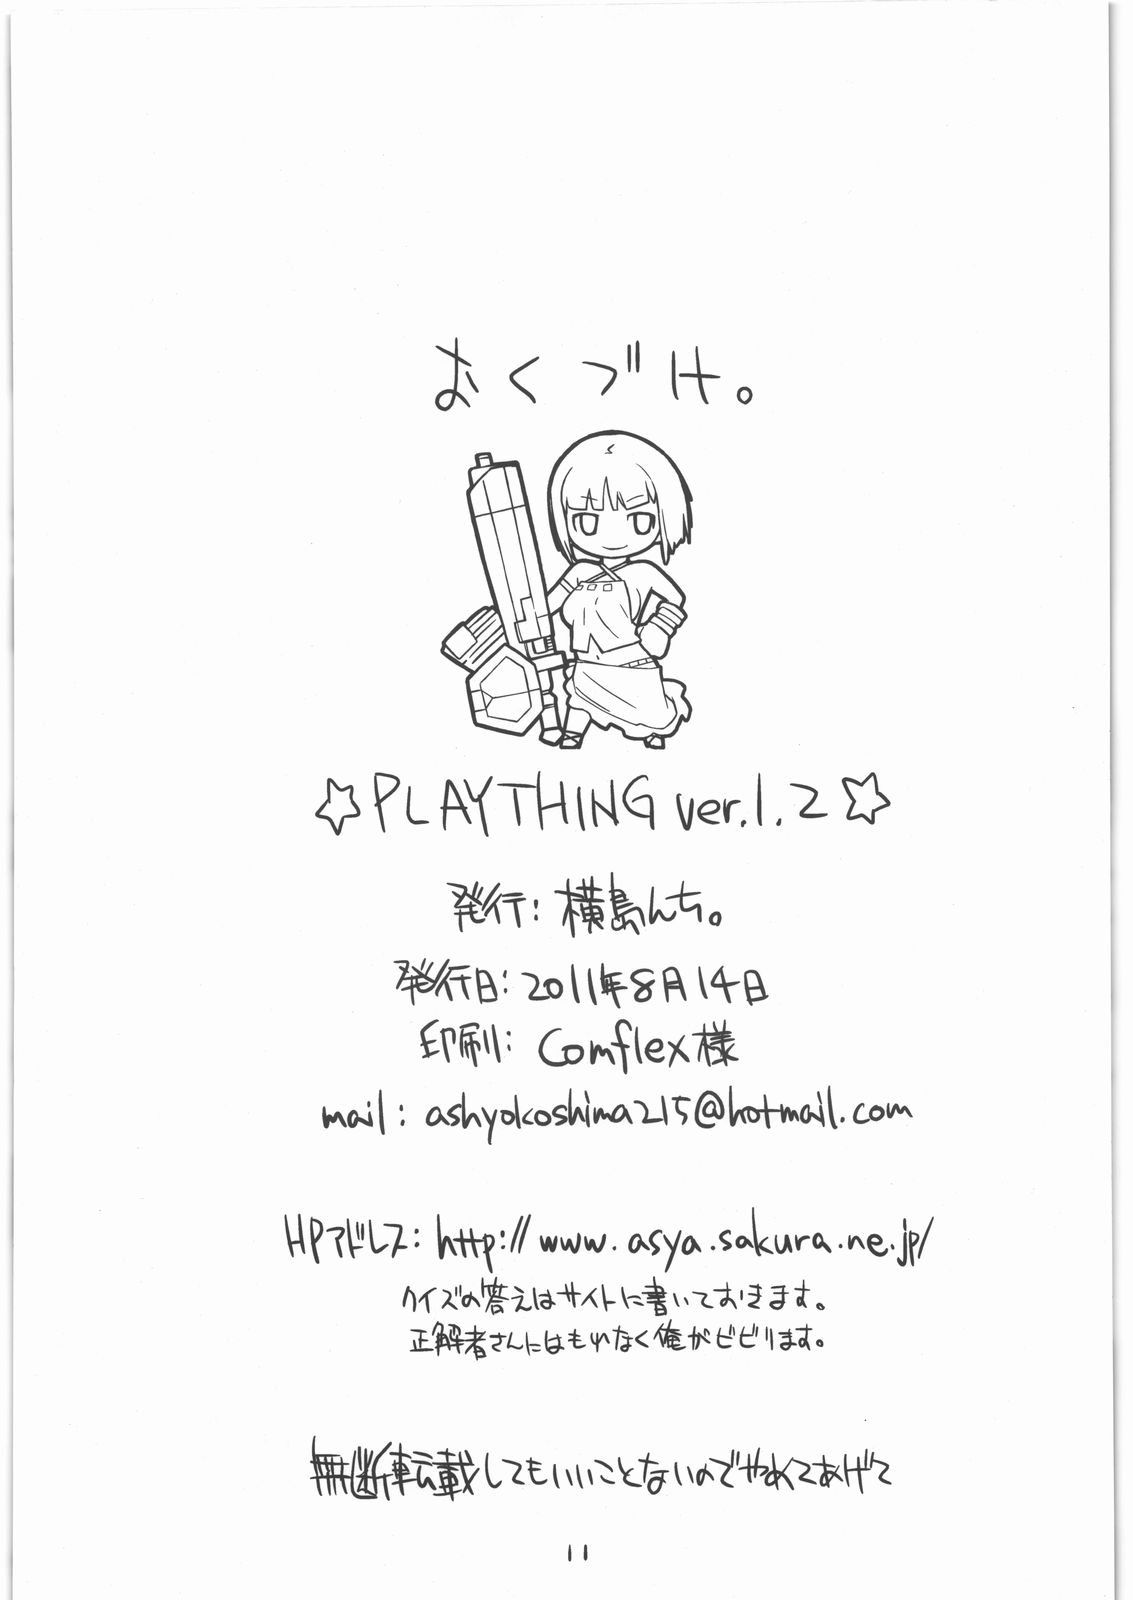 おくづけ。
☆PLAYTHING ver.1.2☆
発行: 横島んち。
発行日: 2011年8月14日
印刷: Comflex様
mail: ashyokoshima215@hotmail.com
HPアドレス: http://www.asya.sakura.ne.jp/
クイズの答えはサイトに書いておきます。
正解者さんにはもれなく俺がビビります。
無断転載してもいいことないのでやめてあげて
11